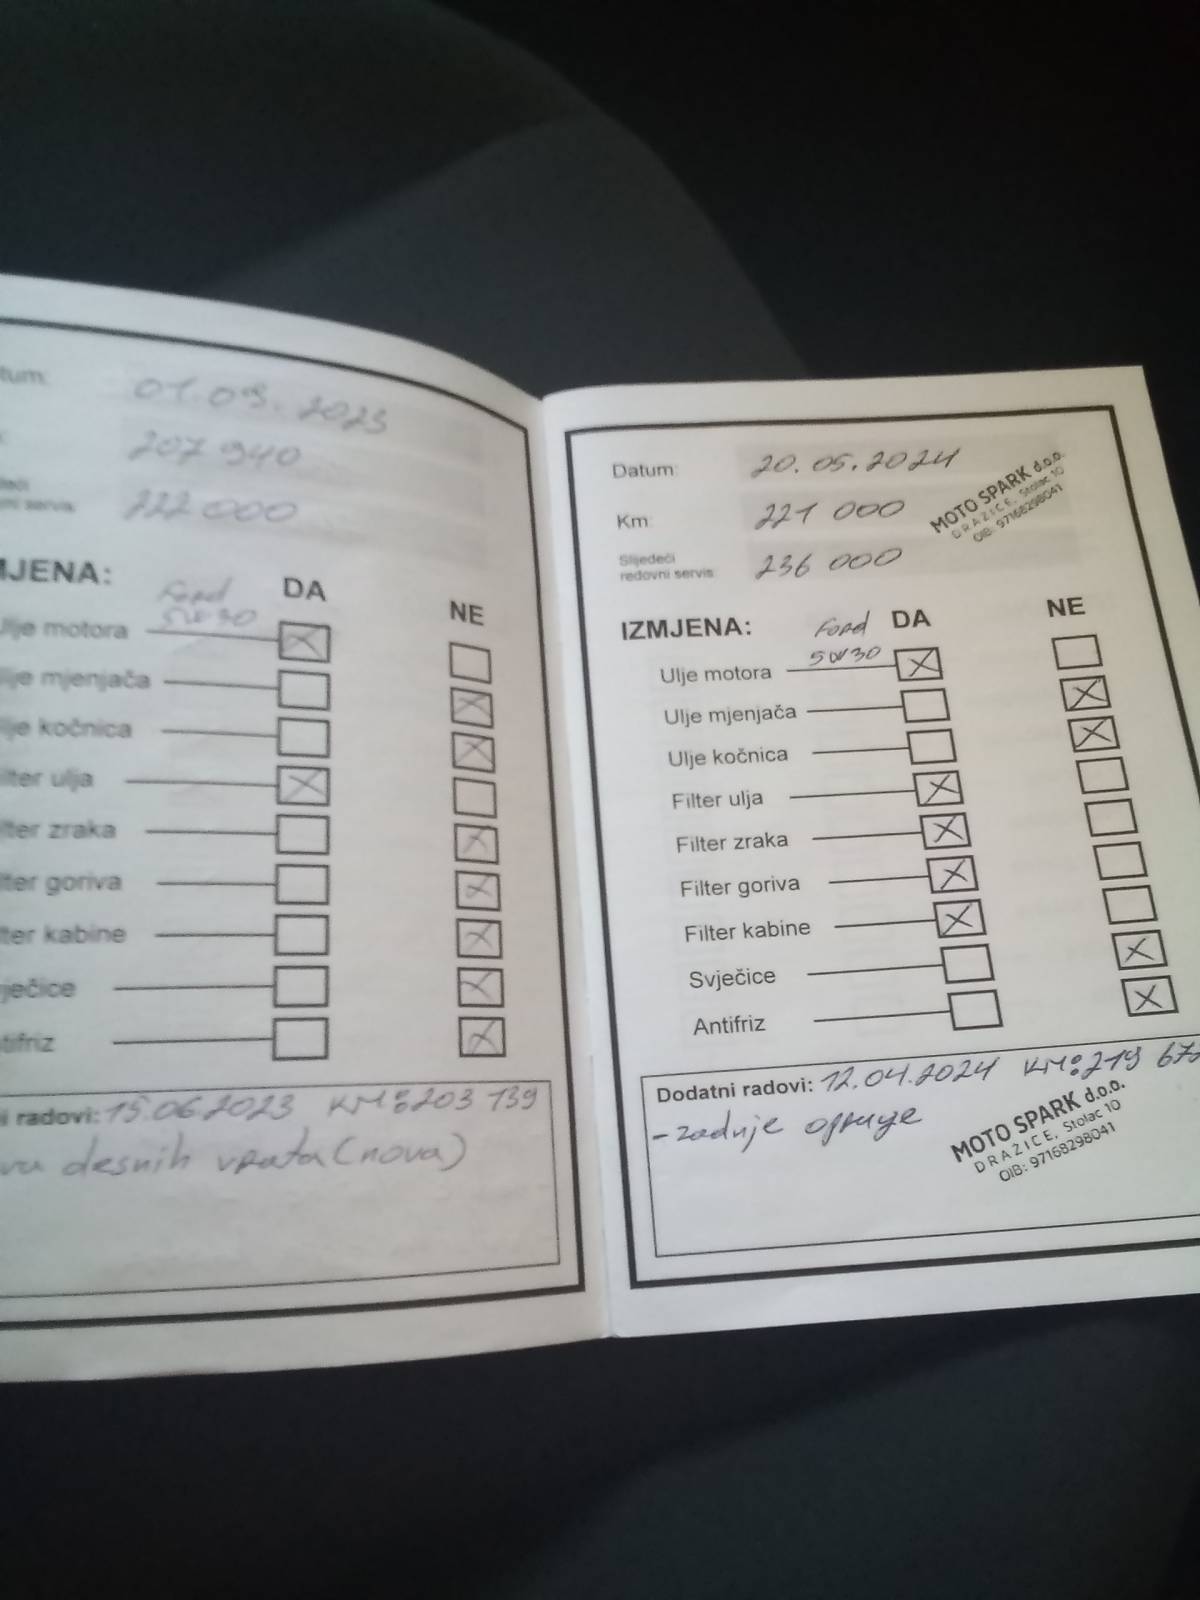 tum:
01.09.2023
207 940
222 000
MJENA:
Ford
DA
NE
5W30
lje motora
lje mjenjača
lje kočnica
ilter ulja
lter zraka
lter goriva
lter kabine
ječice
tifriz
i radovi: 15.06.2023 KM: 203 139
va desnih vrata (nova)
Datum: 20.05.2024
Km: 221 000
Slijedeći
redovni servis: 236 000
MOTO SPARK d.o.o.
DRAŽICE, Stolac 10
OIB: 97168298041
IZMJENA:
Ford
DA
NE
5W30
Ulje motora
Ulje mjenjača
Ulje kočnica
Filter ulja
Filter zraka
Filter goriva
Filter kabine
Svječice
Antifriz
Dodatni radovi: 12.04.2024 KM: 219 672
- zadnje opruge
MOTO SPARK d.o.o.
DRAŽICE, Stolac 10
OIB: 97168298041